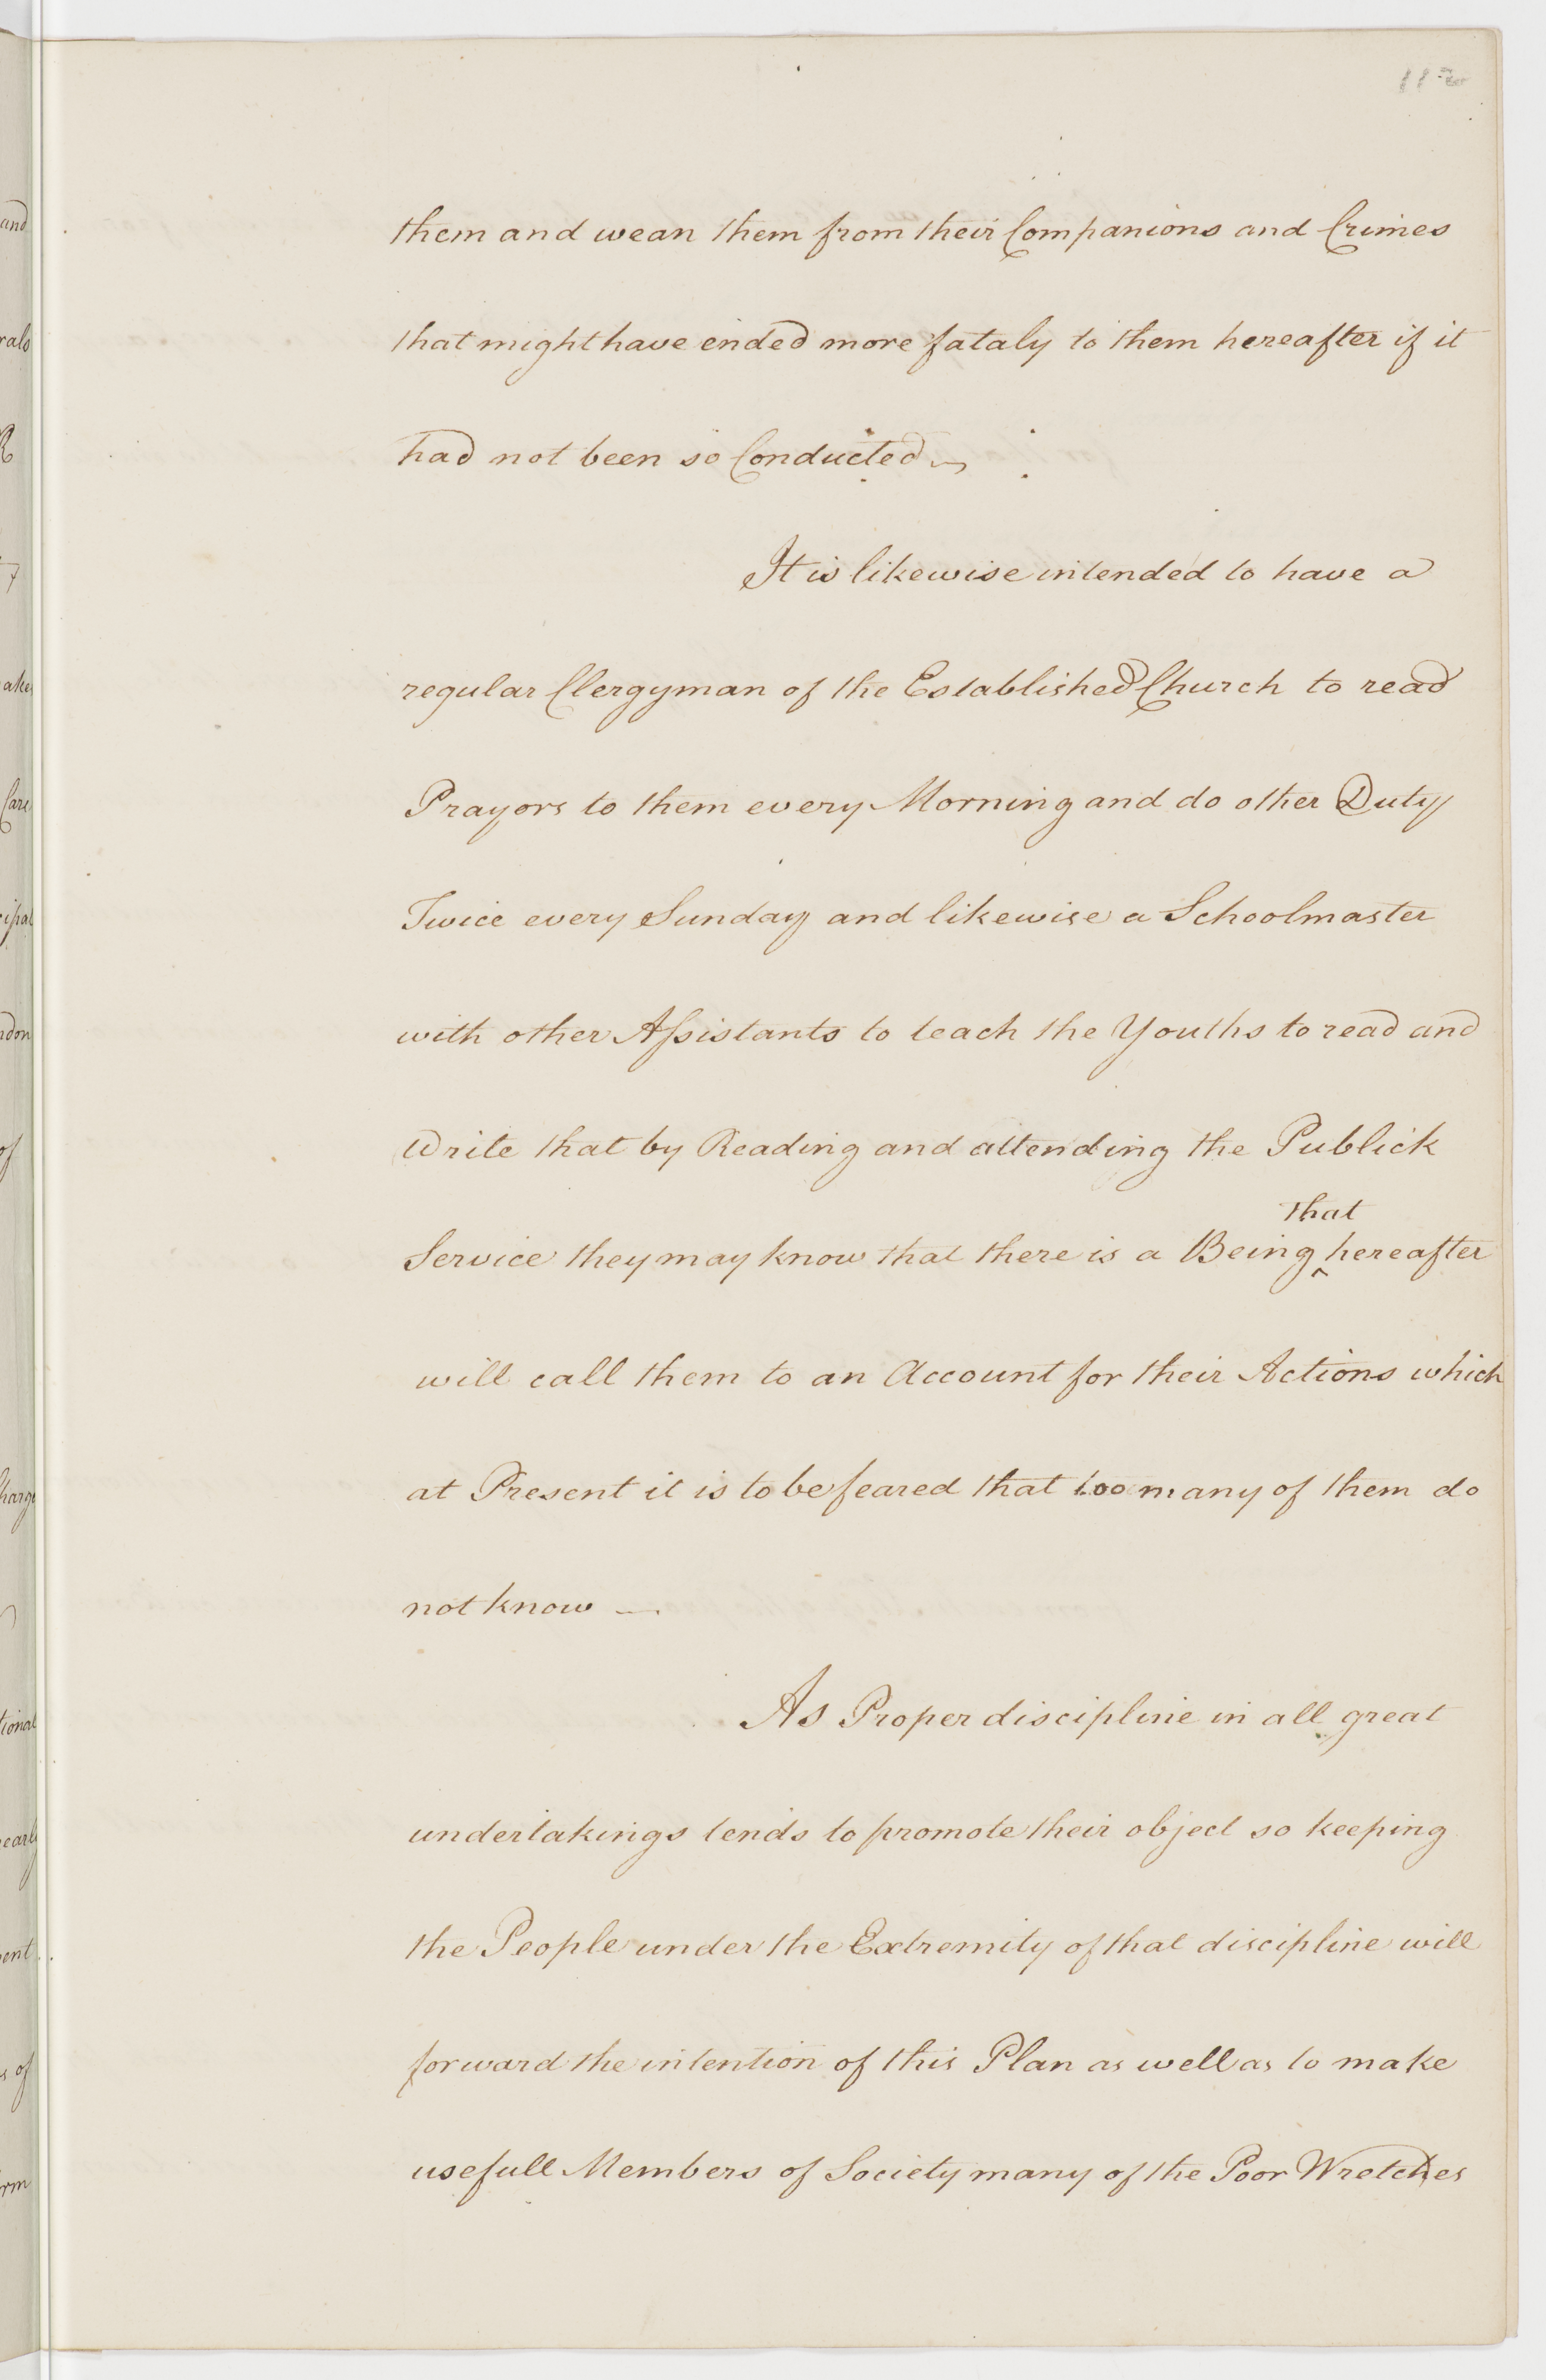 112
them and wean them from their Companions and Crimes
that might have ended more fataly to them hereafter if it
had not been so Conducted
It is likewise intended to have a
regular Clergyman of the Established Church to read
Prayors to them every Morning and do other Duty
Twice every Sunday and likewise a Schoolmaster
with other Assistants to teach the Youths to read and
Write that by Reading and attending the Publick
that
Service they may know that there is a Being ^ hereafter
will call them to an Account for their Actions which
at Present it is to be feared that too many of them do
not know —
As Proper discipline in all great
undertakings tends to promote their object so keeping
the People under the Extremity of that discipline will
forward the intention of this Plan as well as to make
usefull Members of Society many of the Poor Wretches